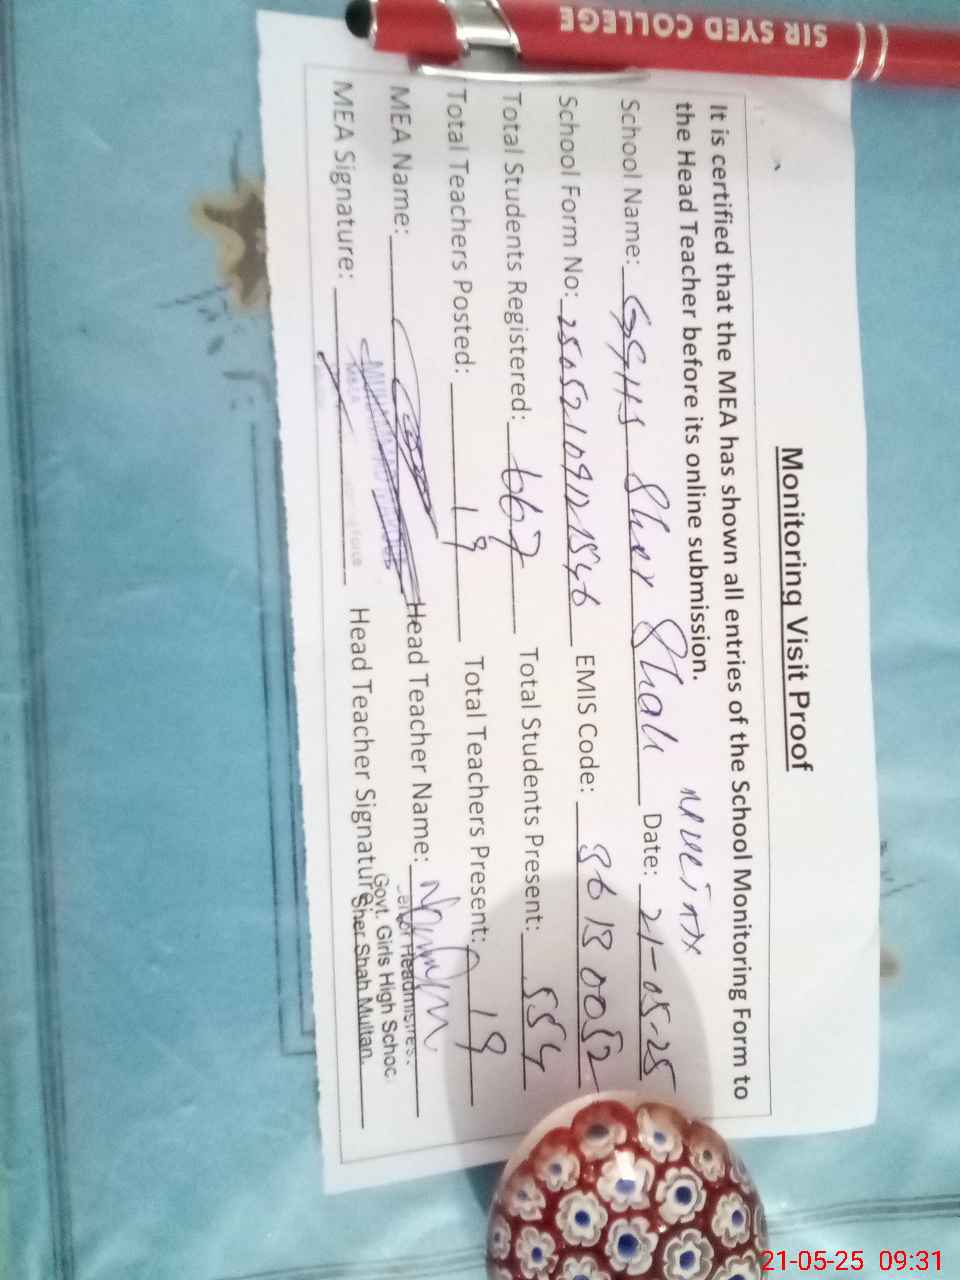 SIR SYED COLLEGE
Monitoring Visit Proof
It is certified that the MEA has shown all entries of the School Monitoring Form to
the Head Teacher before its online submission.
School Name: GGHS Sher Shah Date: 21-05-25
School Form No: EMIS Code: 36130052
Total Students Registered: 667 Total Students Present: 554
Total Teachers Posted: 19 Total Teachers Present: 19
MEA Name: Head Teacher Name:
MEA Signature: Head Teacher Signature:
MUHAMMAD
Govt. Girls High Schoo
Sher Shah Multan.
21-05-25 09:31